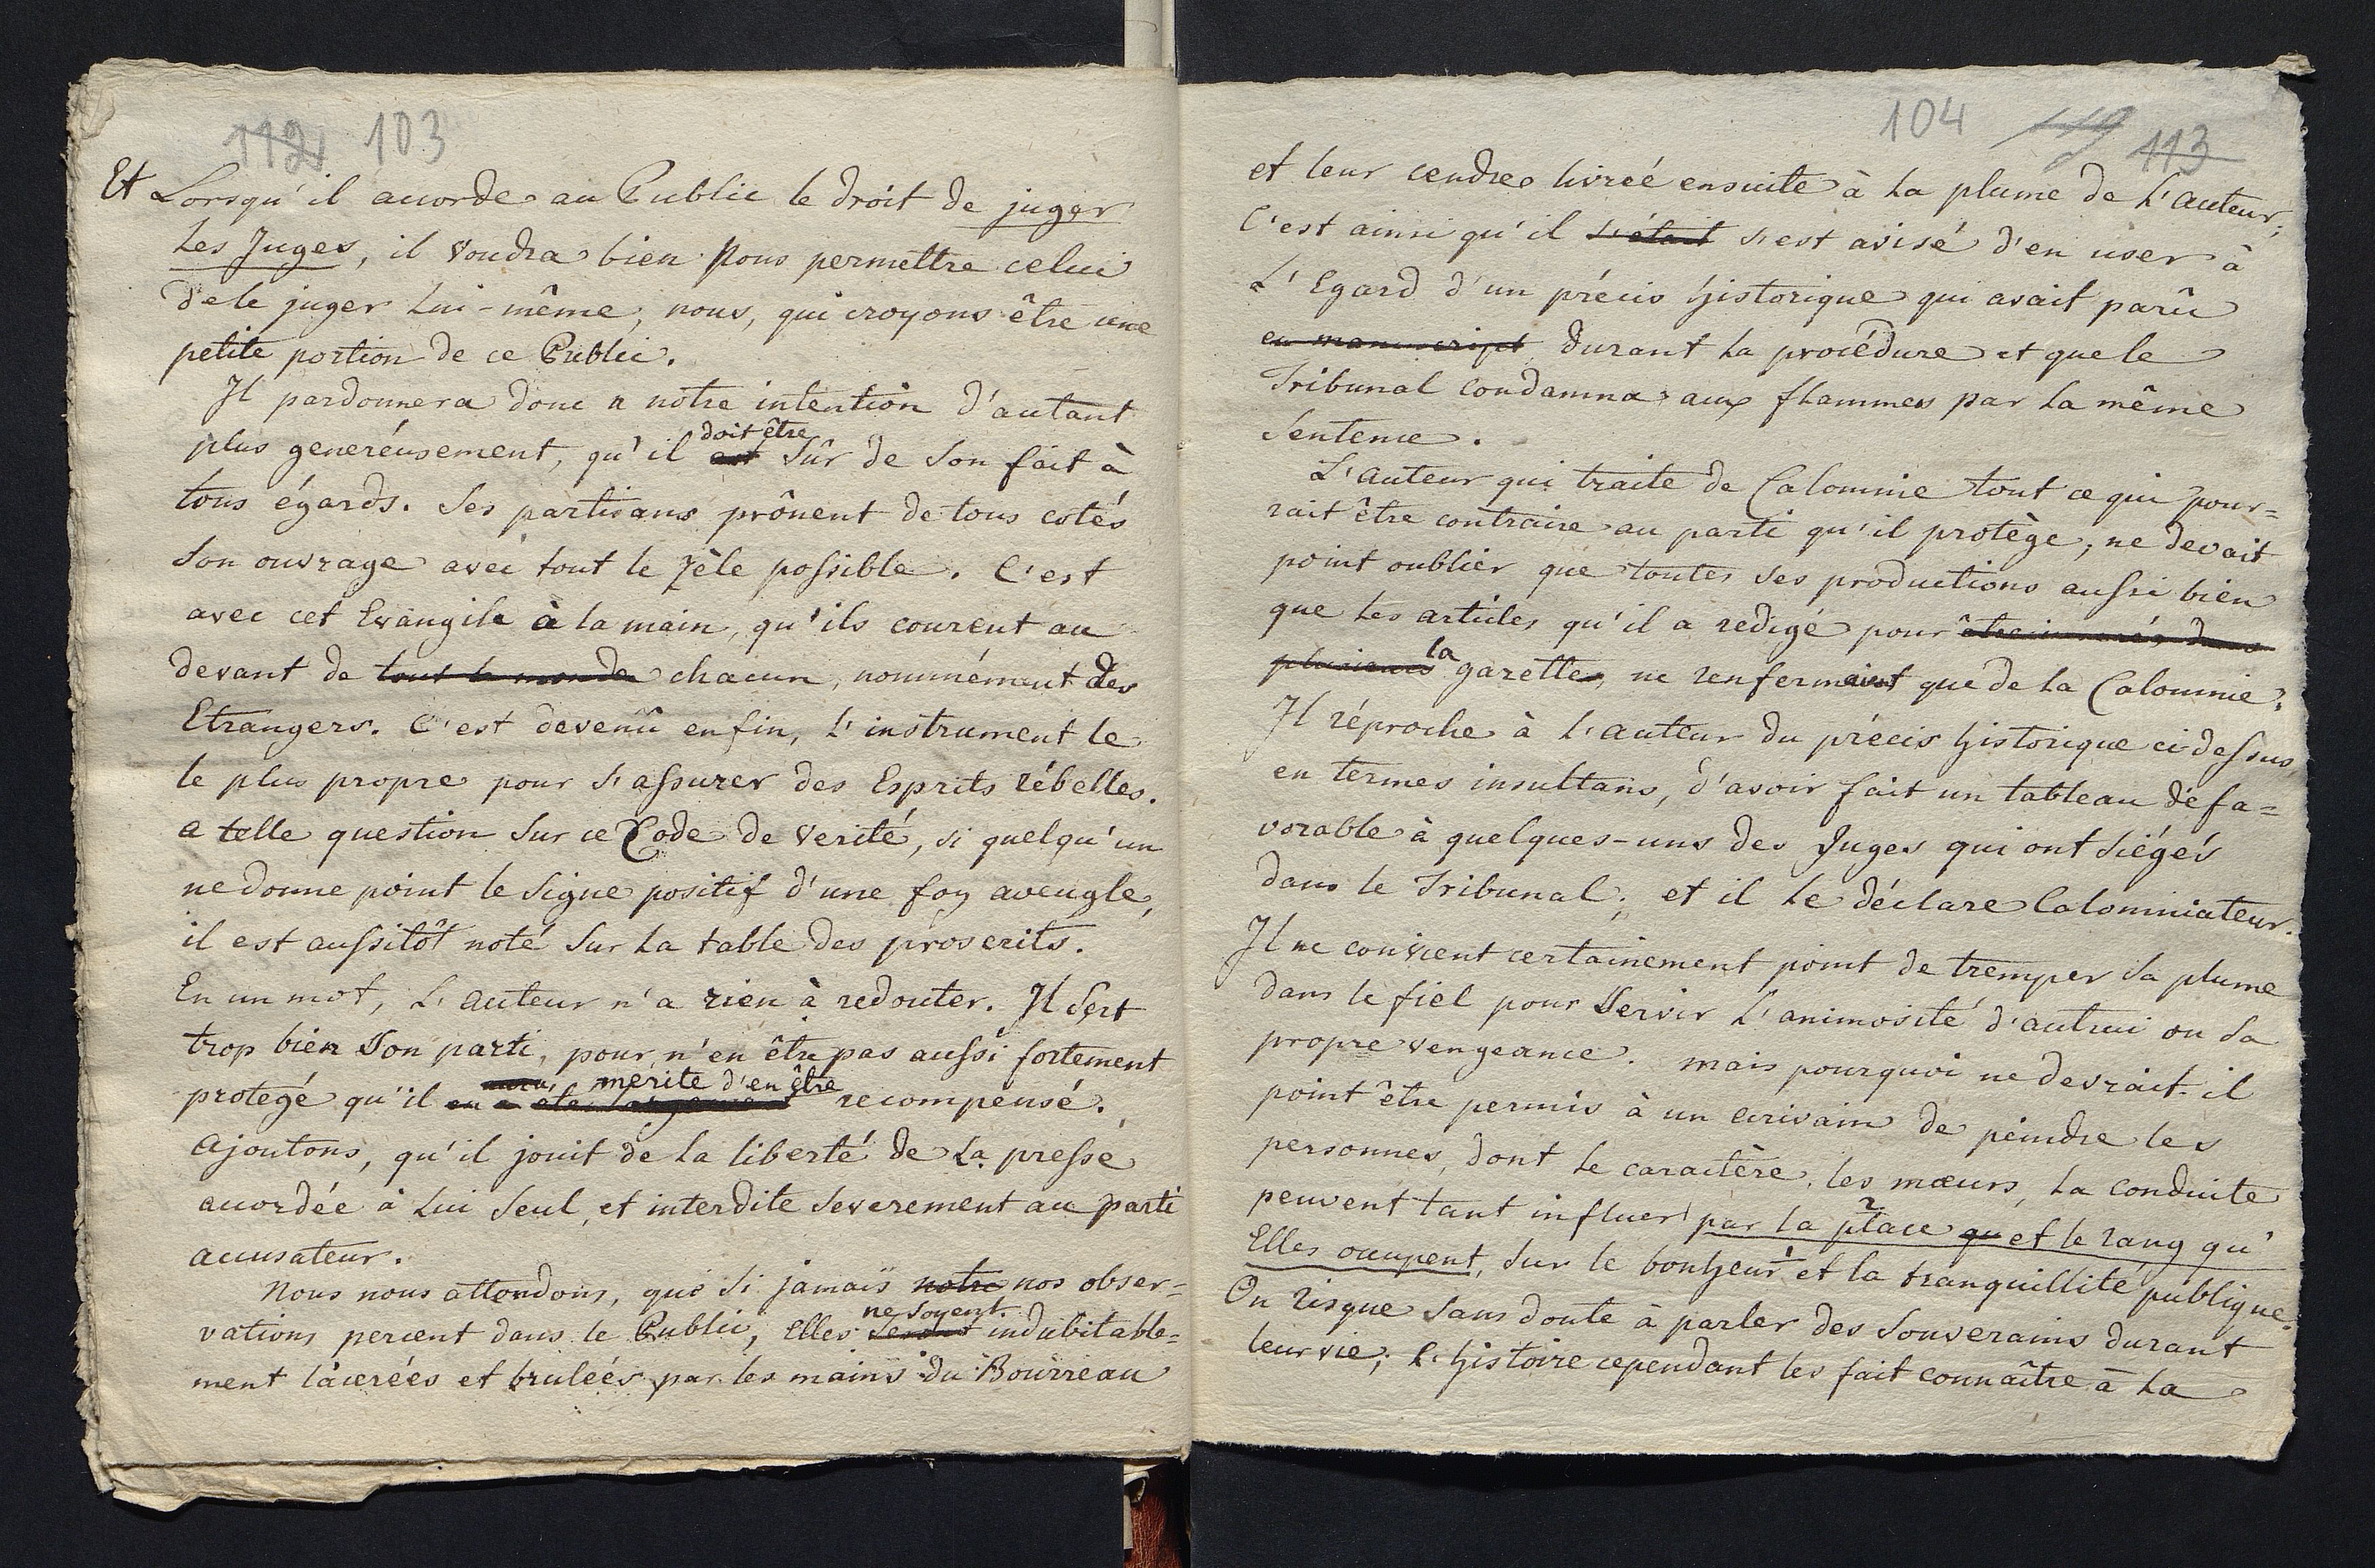 112 103
Et Lorsqu'il accorde au Public le droit de juger
Les Juges, il voudra bien Nous permettre celui
de le juger Lui-même, nous, qui croyons être une
petite portion de ce Public.
Il pardonnera donc a notre intention d'autant
doit être
plus genereúsement, qu'il est Sûr de Son fait à
tous égards. Ses partisans prônent de tous cotés
Son ouvrage avec tout le Zèle possible. C'est
avec cet Evangile à la main, qu'ils courent au
devant de tout le monde chacun, nommément des
Etrangers. C'est devenû enfin, L'instrument le
le plus propre pour s'assurer des Esprits rébelles.
a telle question Sur ce Code de Verité, si quelqu'un
ne donne point le Signe positif d'une foy aveugle,
il est aussitôt noté Sur La table des proscrits.
En un mot, L'auteur n'a rien à redouter. Il Sert
trop bien Son parti, pour n'en être pas aussi fortement
mérite d'en être
protegé qu'il en a été recompensé.
Ajoutons, qu'il jouit de La liberté de La presse
accordée à Lui Seul, et interdite Severement au parti
accusateur.
Nous nous attendons, que Si jamais notre nos obser=
ne soyent
vations percent dans le Public, Elles Seront indubitable=
ment lacerées et brulées par les mains du Bourreau
104 119 113
et leur cendre livrée ensuite à La plume de L'auteur;
C'est ainsi qu'il s'était s'est avisé d'en user à
L'Egard d'un précis historique qui avait parû
en manuscript durant La procédure et que le
Tribunal condamna aux flammes par La même
Sentence.
L'auteur qui traite de Calomnie tout ce qui pour=
rait être contraire au parti qu'il protège, ne devait
point oublier que toutes ses productions aussi bien
que Les articles qu'il a redigé pour
plusieurs la gazette, ne renfermaient que de La Calomnie.
Il réproche à L'auteur du précis historique ci dessus
en termes insultans, d'avoir fait un tableau défa=
vorable à quelques-uns des Juges qui ont Siégés
dans le Tribunal; et il Le déclare Calomniateur.
Il ne convient certainement point de tremper Sa plume
dans le fiel pour Servir L'animosité d'autrui ou Sa
propre vengeance. mais pourquoi ne devrait-il
point être permis à un ecrivain de peindre les
personnes, dont Le caractère, les mœurs, La conduite
2
peuvent tant influer par la place qu et le rang qu'
Elles occupent, Sur le bonheur et la tranquillité publique.
On risque Sans doute à parler des Souverains durant
leur vie; L'histoire cependant les fait connaître à La